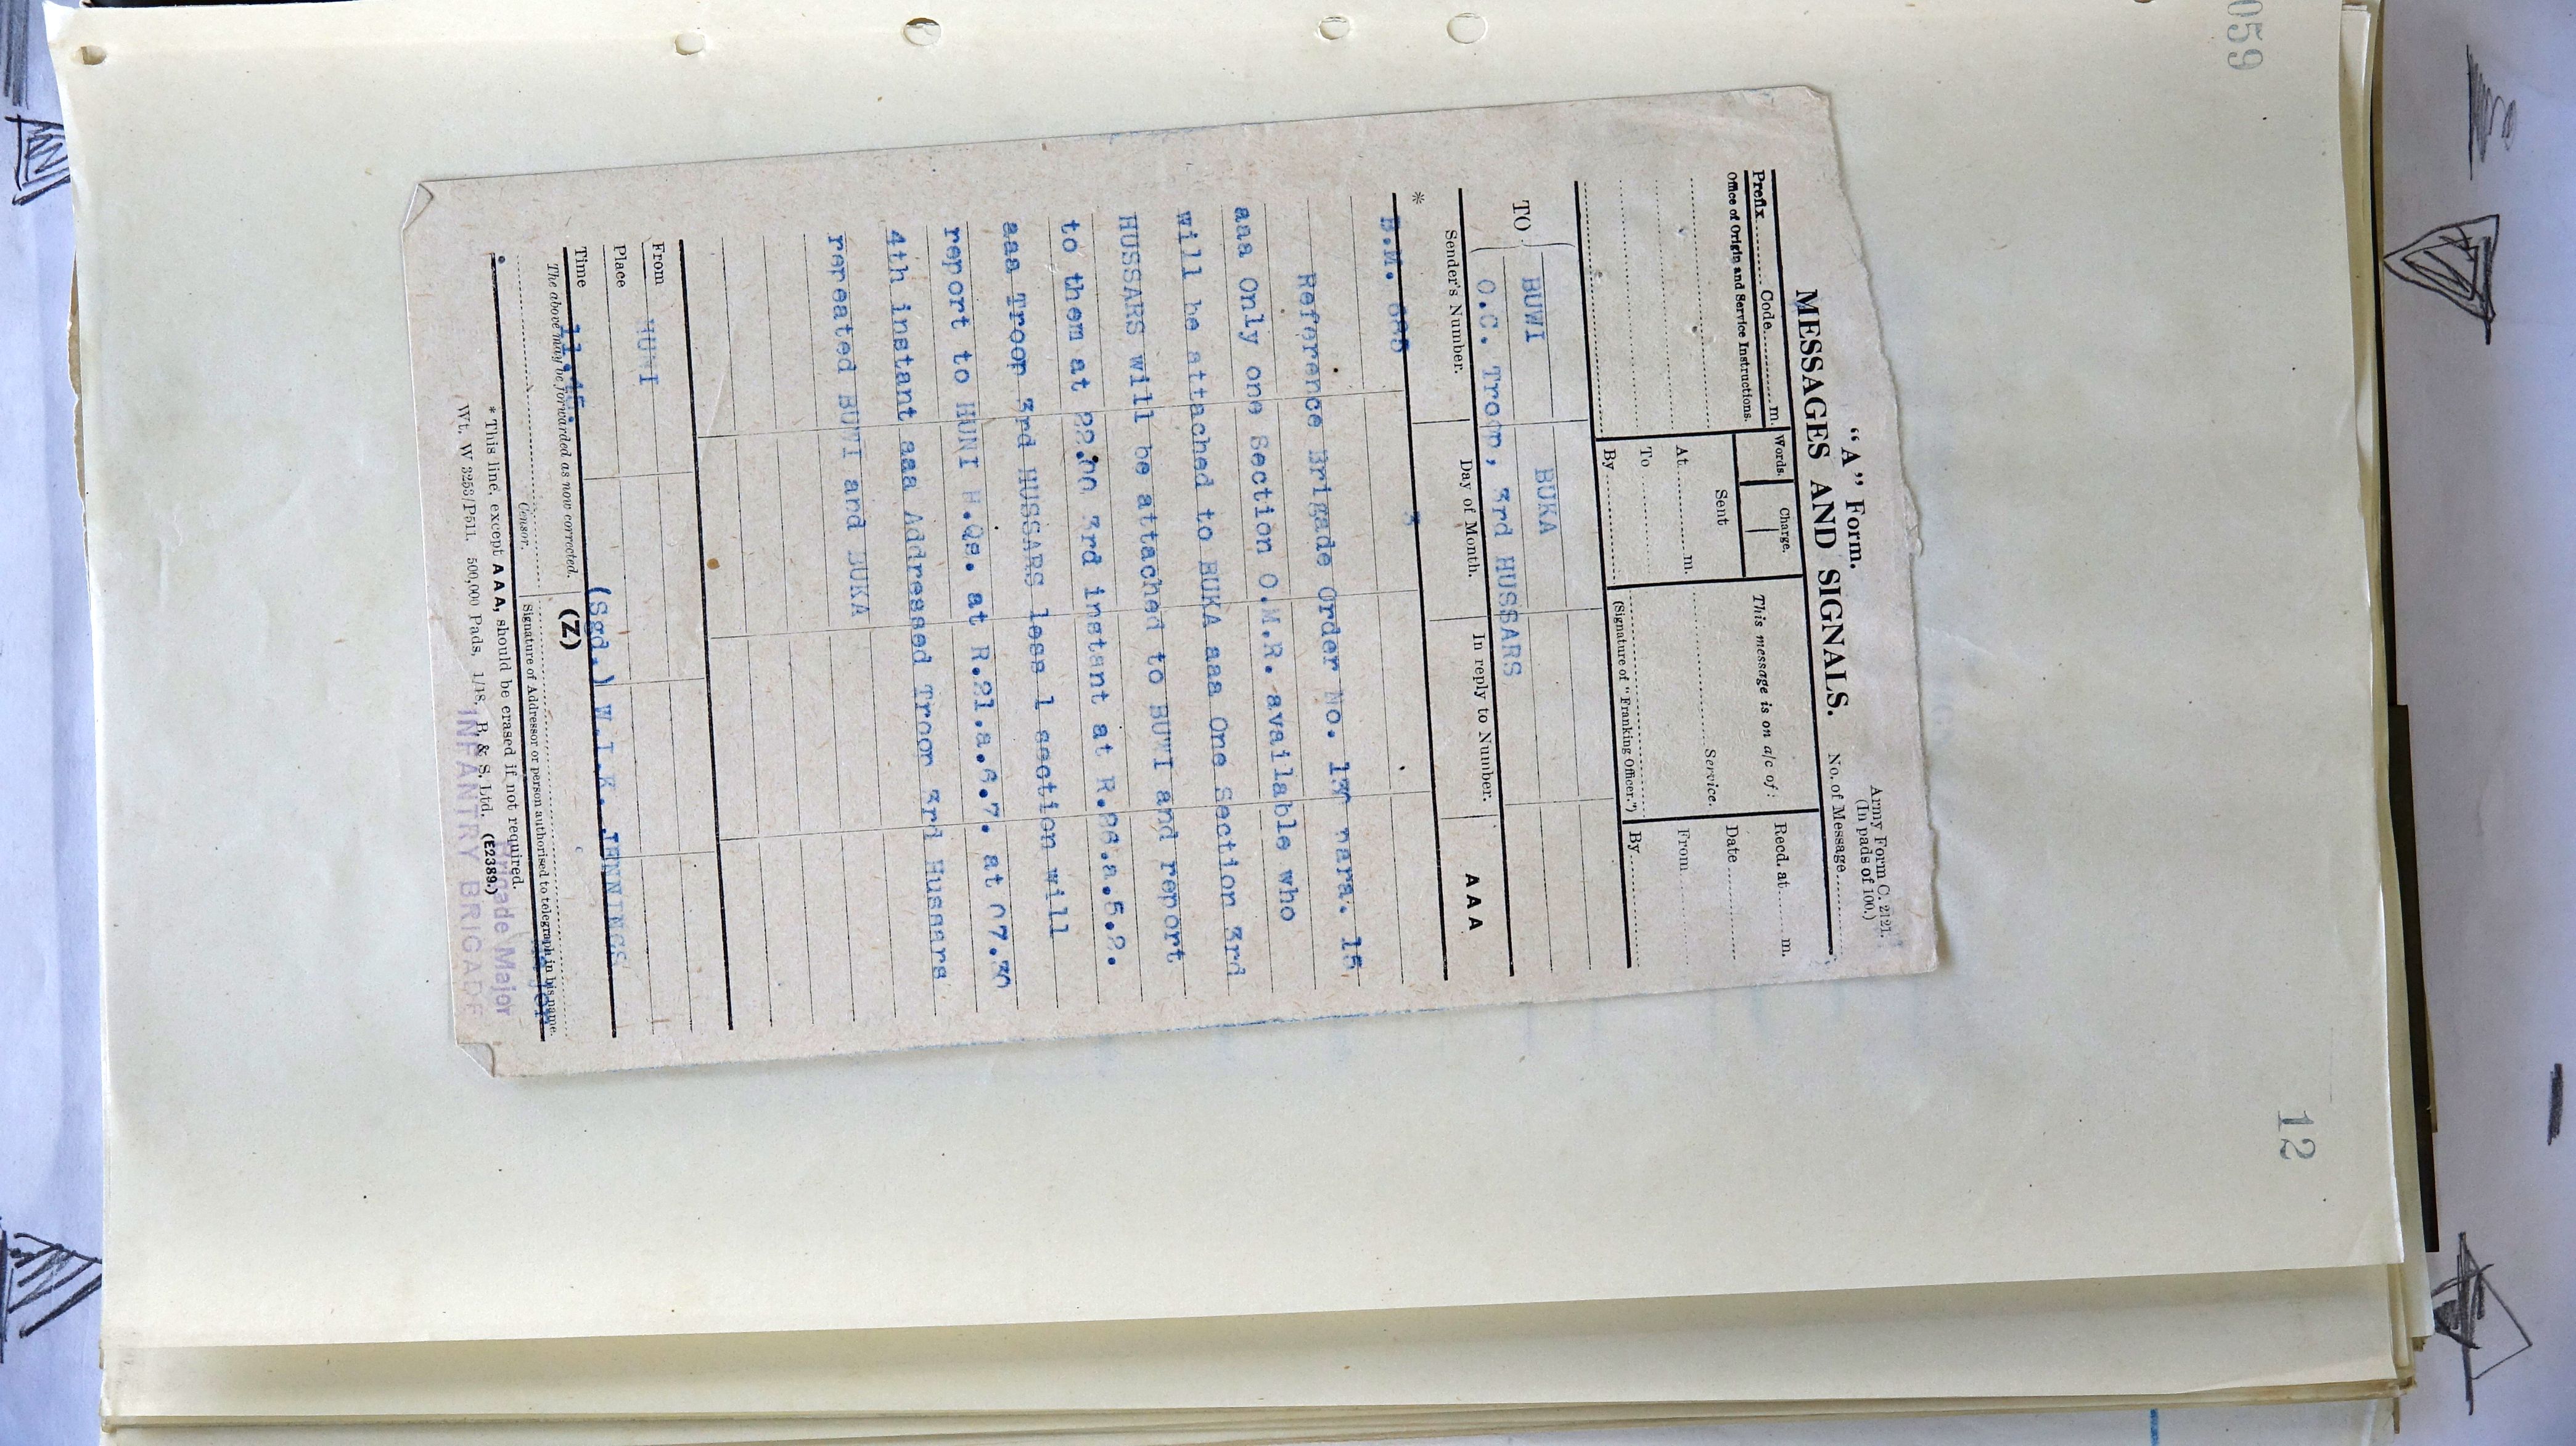 059
12
"A" Form.
MESSAGES AND SIGNALS.
Army Form C. 2121.
(In pads of 100.)
No. of Message
Prefix Code m.
Words. Charge.
This message is on a/c of :
Recd. at m.
Office of Origin and Service Instructions.
Sent
Service.
Date
At m.
From
To
By
(Signature of "Franking Officer.")
By
TO
BUWI BUKA
O.C. Troop, 3rd HUSSARS
Sender's Number. Day of Month. In reply to Number. AAA
* B.M. 3
Reference Brigade Order No. 130 para. 15
aaa Only one Section O.M.R. available who
will be attached to BUKA aaa One Section 3rd
HUSSARS will be attached to BUWI and report
to them at 22.00 3rd instant at R.26.a.5.2.
aaa Troop 3rd HUSSARS less 1 section will
report to HUNI H.Qs. at R.21.a.6.7. at 07.30
4th instant aaa Addressed Troop 3rd Hussars
repeated BUWI and BUKA
From HUNI
Place
Time 11.45.
(Sgd.) W.I.K. JENNINGS
The above may be forwarded as now corrected. (Z)
Major
Censor. Signature of Addressor or person authorised to telegraph in his name.
* This line, except AAA, should be erased if not required.
Brigade Major
Wt. W 3253/P511. 500,000 Pads. 1/18. B. & S. Ltd. (E2389.)
INFANTRY BRIGADE